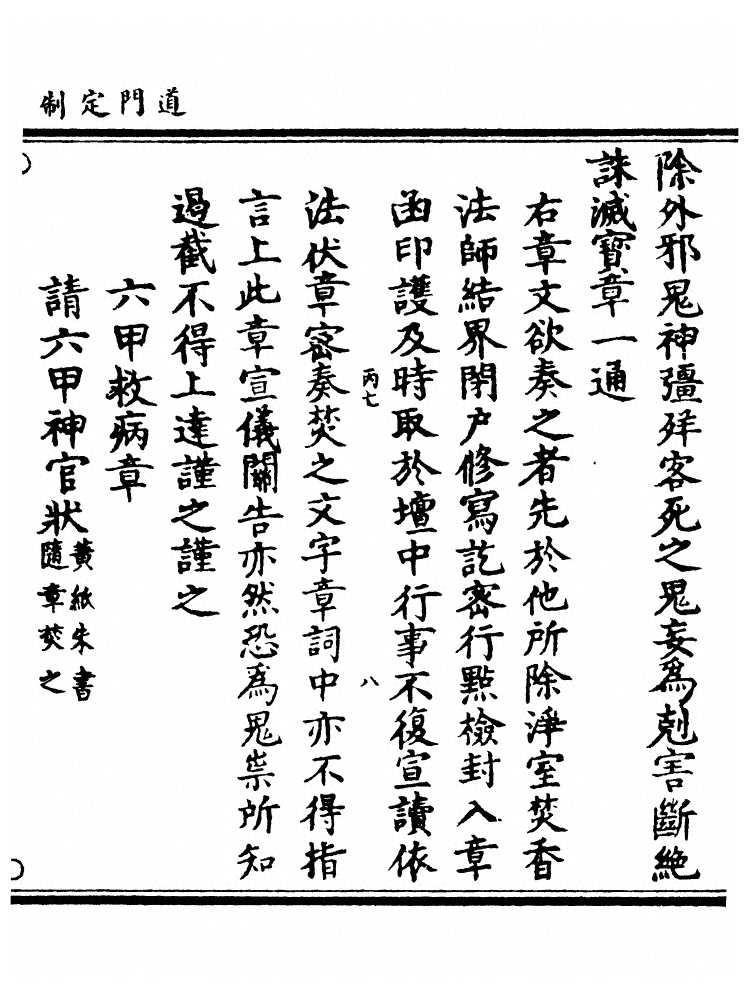 道門定制
除外邪鬼神彊殍客死之鬼妄為剋害斷絶
誅滅寶章一通
右章文欲奏之者先於他所除淨室焚香
法師結界閉戶修寫訖密行點檢封入章
函印護及時取於壇中行事不復宣讀依
丙七
八
法伏章密奏焚之文字章詞中亦不得指
言上此章宣儀關告亦然恐為鬼祟所知
遏截不得上達謹之謹之
六甲救病章
請六甲神官狀黃紙朱書
隨章焚之